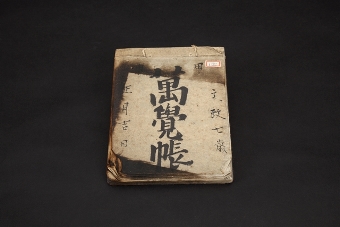 文政七歳
萬覺帳
正月吉日